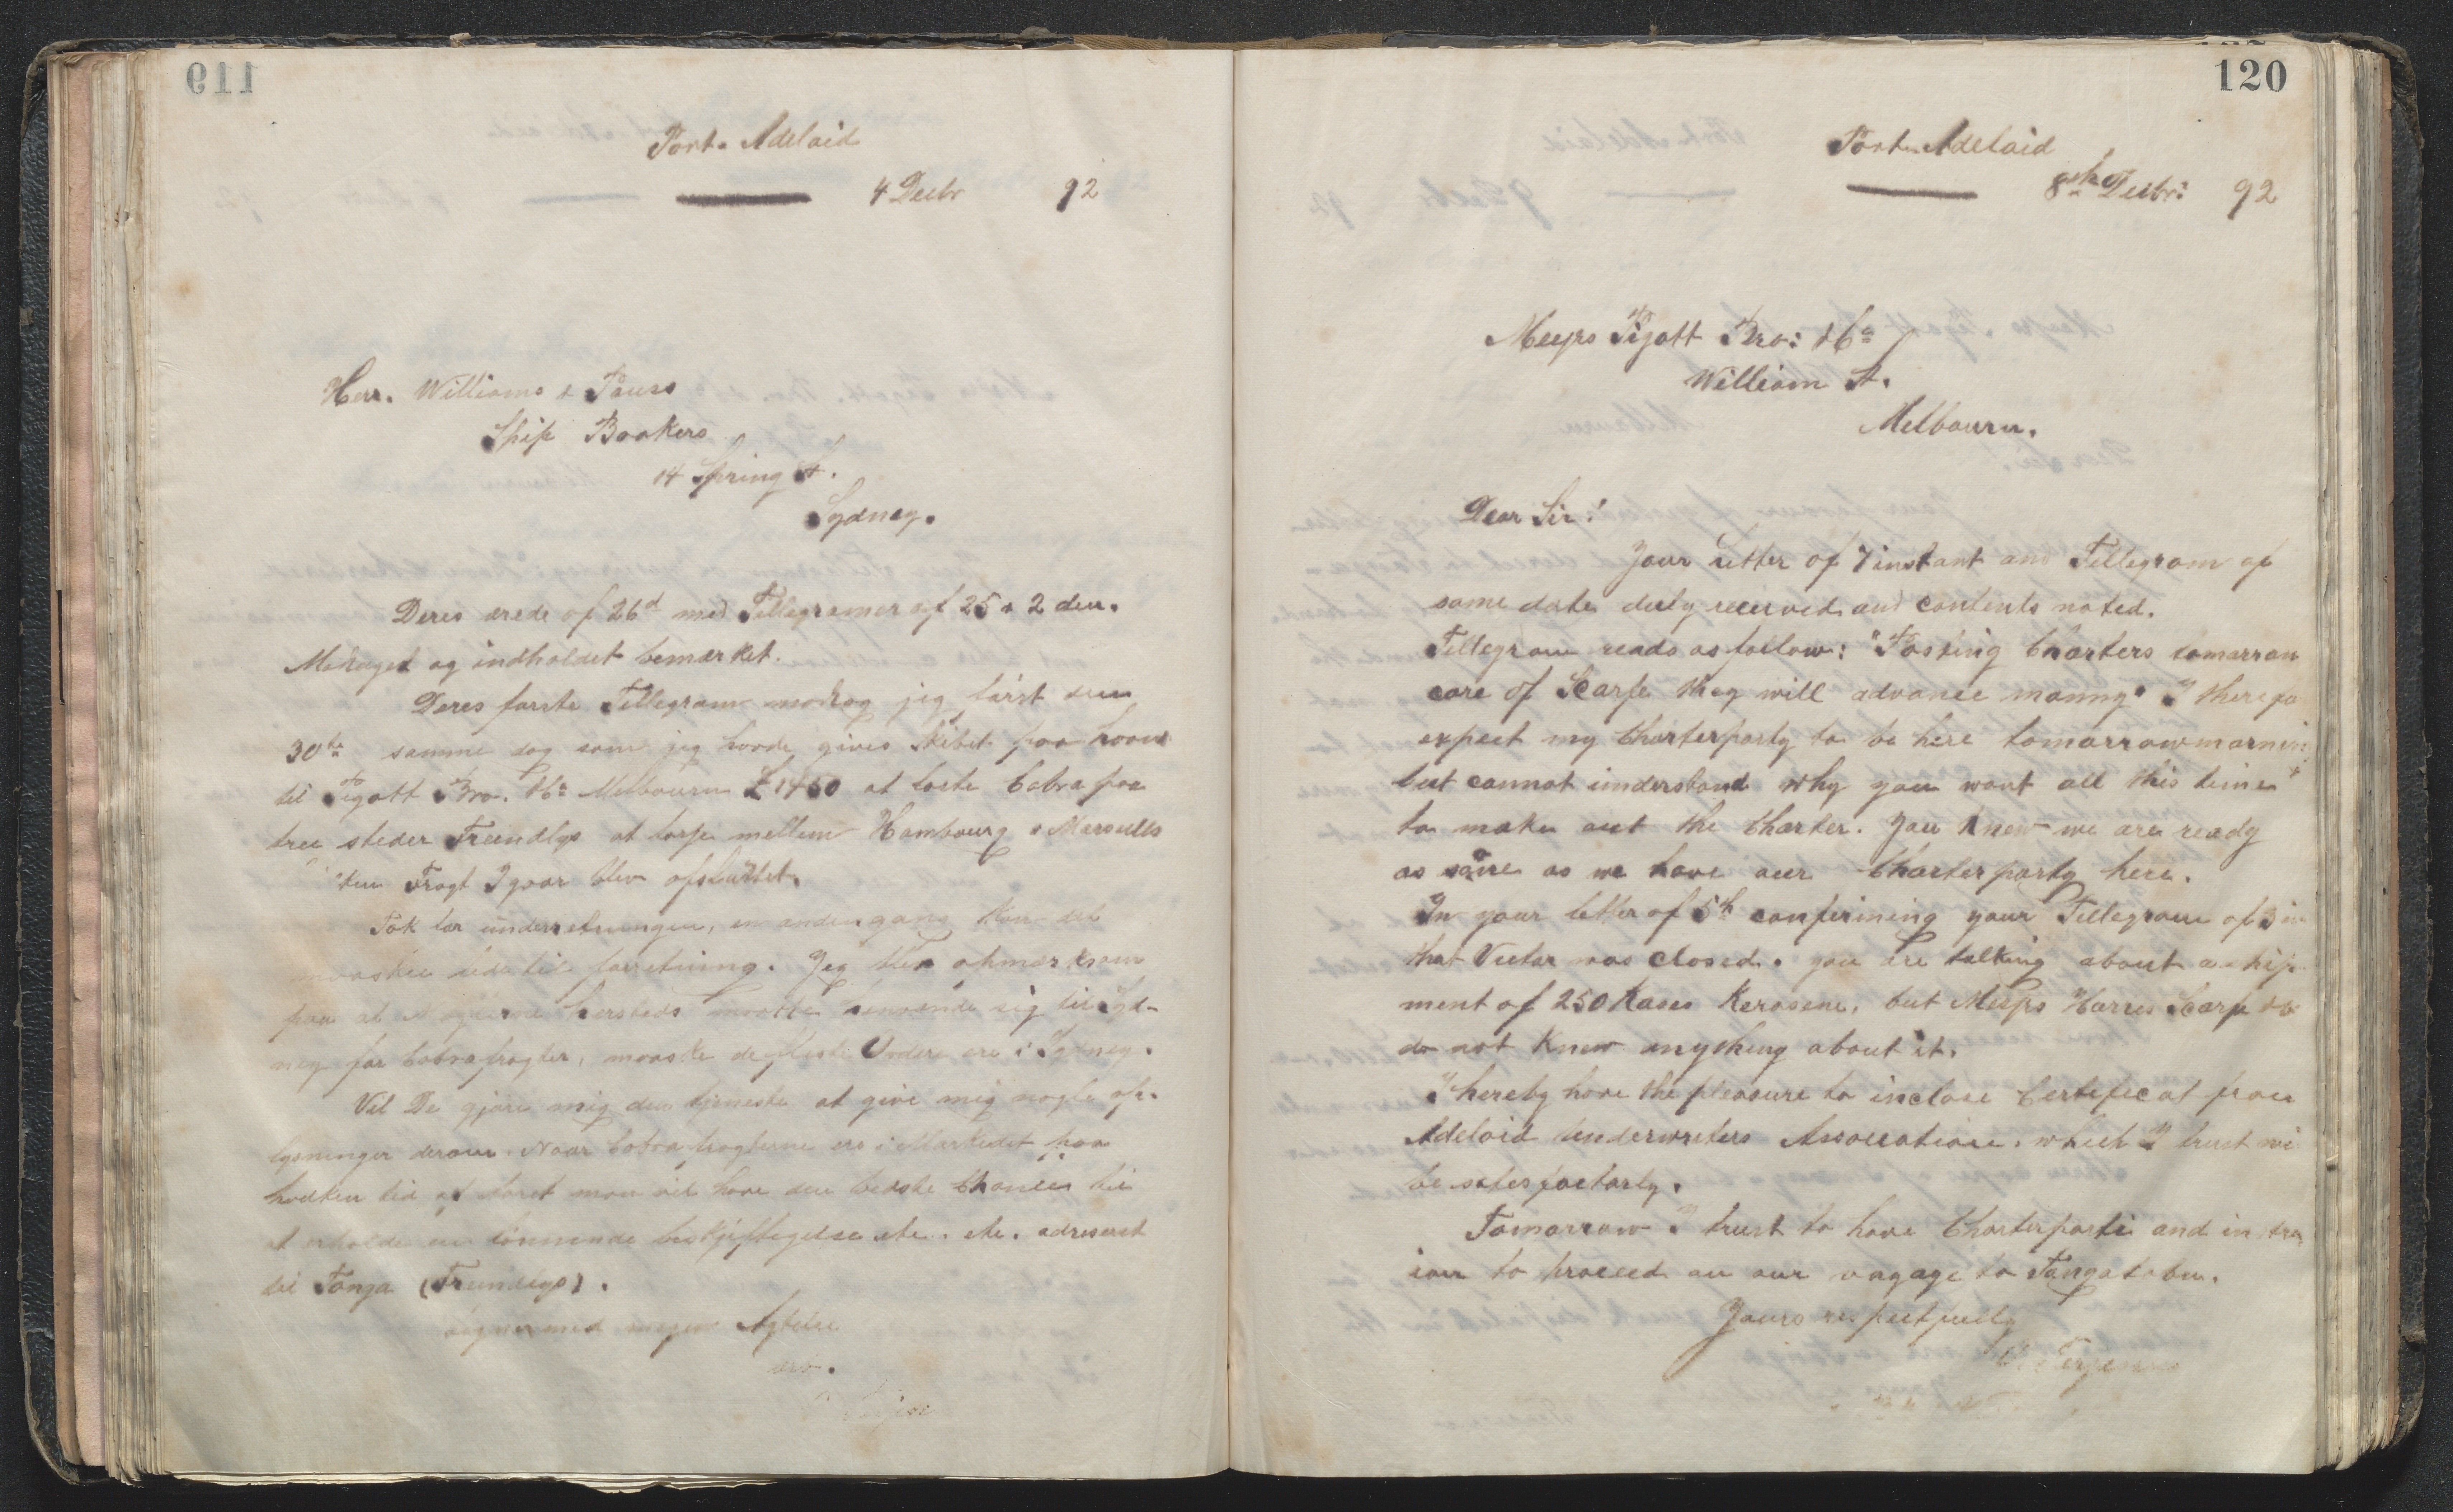 119
Port. Adelaid
4 Decbr 92
Herr. Williams & Pauss
Ship Brokers
14 Spring St.
Sydney.
Deres ærede af 26d med Tellegramer af 25 & 2 den.
Motaget og indholdet bemærket.
Deres første Tellegram motog jeg først den
30te samme dag som jeg havde given Skibet paa haand
til Pigott Bro. & Co Melbourn £1450 at loste Cobra paa
tree steder Freindlys at losse mellem Hambourg & Marseills
Fragt Igaar blev afsluttet.
Tak for underretningen, en anden gang kan det
maaskee lede til forretning. Jeg blev opmærksom
paa at
ney for Cobrafragter, maaske de fleste Ordere ere i Sydney.
Vil De gjøre mig den tjeneste at give mig nogle op-
lysninger derom. Naar Cobrafragterne ere i Markedet paa
hvilken tid af Aaret man vil have den bedste Chance til
at erholde en lønnende beskjæftigelse etc. etc. adreseret
til Tonga (Freindlys).
med megen Agtelse
120
Port. Adelaid
8th Decbr: 92
Messrs Pigott Bro: & Co
William St.
Melbourn.
Dear Sir!
Your letter of 7 instant and Tellegram of
same date duly received and contents noted.
Tellegram reads as follow: "Posting Charters tomorrow
care of Scarfe they will advance monny" I therefo
expect my Charterparty to be here tomorrow mornin
but cannot understand why you want all this time
to make out the Charter. You know we are ready
as soon as we have our Charterparty here.
In your letter of 5th confirming your Tellegram of 3 in
that Victor was closed. you are talking about a ship-
ment of 250 Kases Kerosene, but Messrs Harris Scarfe & Co
do not know anything about it.
I hereby have the pleasure to inclose Certeficat from
Adelaid Underwriters Association. which I trust wi
be satesfactorly.
Tomorrow I trust to have Charterparti and instru
ion to proceed on our voyage to Tangatabu.
Yours respectfully